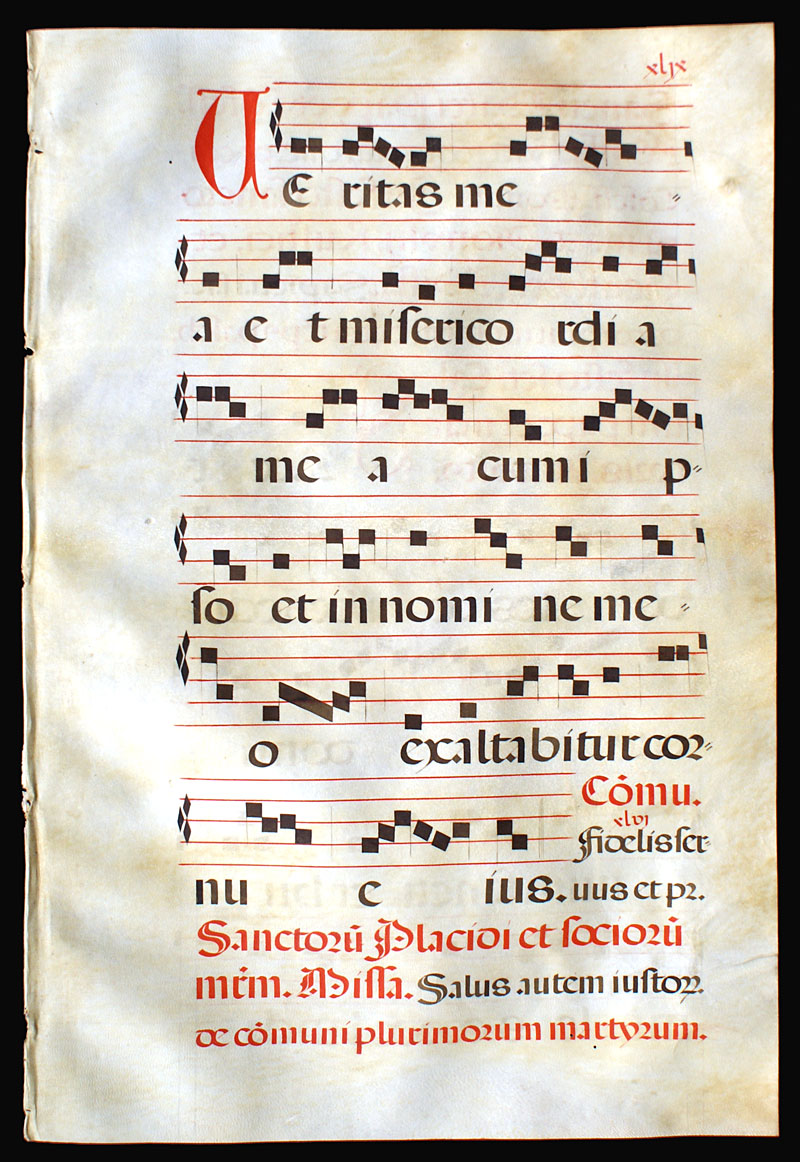 xljx
UE ritas me =
a e t miſerico rdi a
me a cum i p=
ſo et in nomi ne me =
o exaltabitur cor=
Cõmu.
xlvj
fidelis ſer=
nu e ius. uus et pr.
Sanctorũ Placidi et ſociorũ
mr̃m. Miſſa. Salus autem iustoꝝ.
de cõmuni plurimorum martyrum.